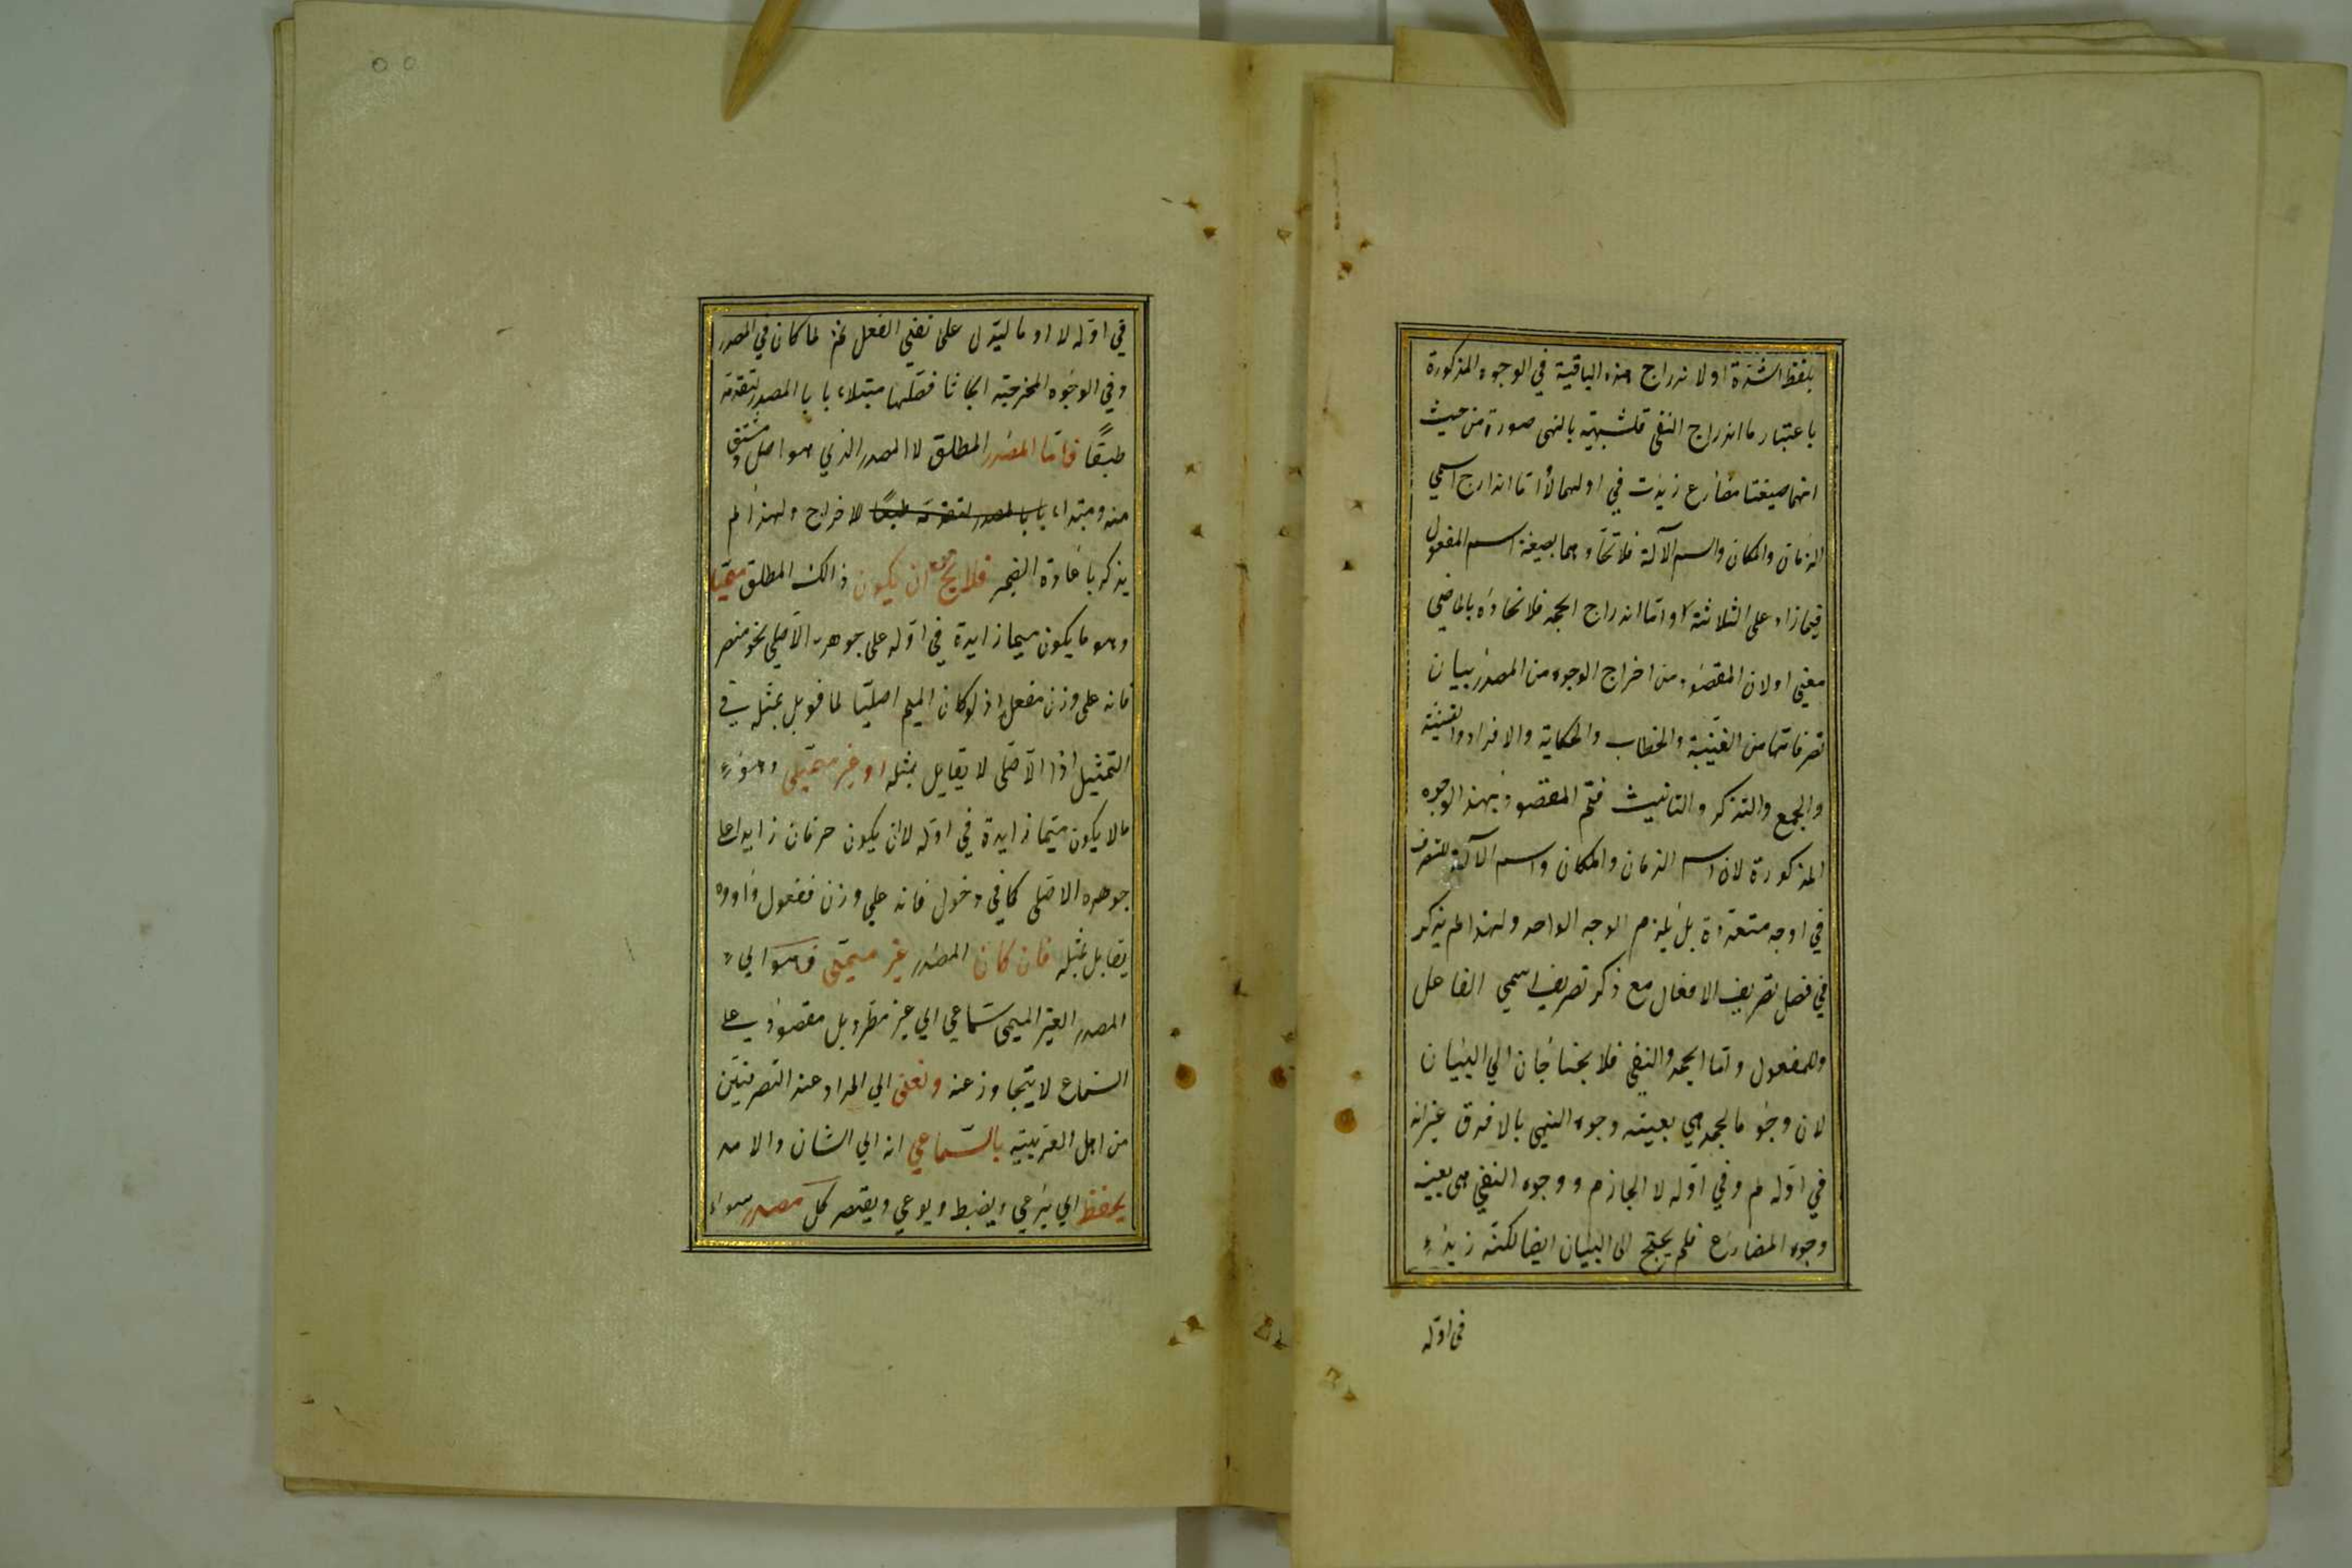 بلفظ الشدة او لاندراج هذه الباقية في الوجوه المذكورة
باعتبار ما اندراج النفى فلشبهيته بالنهى صورة من حيث
انهما صيغتا مضارع زيدت في اولهما لا اما اندارج اسمي
الزمان والمكان واسم الآلة فلاتحادهما بصيغة اسم المفعول
فيما زاد على الثلاثة واما اندراج الجحد فلاتحاده بالماضي
معني او لان المقصود من اخراج الوجوه من المصدر بيان
تصرفاتها من الغيبة والخطاب والحكاية والافراد والتثنية
والجمع والتذكر والتانيث فتم المقصود بهذه الوجوه
المذكورة لان اسم الزمان والمكان واسم الآلة
في اوجه متعددة بل يلزم الوجه الواحد ولهذا لم يذكر
في فصل تصريف الافعال مع ذكر تصريف اسمي الفاعل
والمفعول واما الجحد والنفي فلا يحتاجان الي البيان
لان وجوه الجحد هي بعينه وجوه النهي بلا فرق غير ان
في اوله لم وفي اوله لا الجازم ووجوه النفي هى بعينه
وجوه المضارع فلم يحتج الى البيان ايضا لكنه زيد
في اوله
في اوله لا او ما ليدل على نفي الفعل ثم لما كان في المصدر
وفي الوجوه المخرجة ابحاثا فصلها مبتدا بابا المصدر لتقدمه
طبعًا فاما المصدر المطلق لا المصدر الذي هو اصل ومشتق
منه ومبتداء بابا لمصدر لتقدمه طبعًا لاخراج ولهذا لم
يذكر باعادة الضمير فلا يخ من ان يكون ذالك المطلق ميميا
وهو ما يكون ميما زايدة في اوله على جوهره الاصلي نحو منصر
فانه على وزن مفعل اذ لو كان الميم اصليا لما قوبل بمثله في
التمثيل اذا الاصلى لا يقابل بمثله او غير ميمى وهو
ما لا يكون ميما زايدة في اوله لان يكون حرفان زايدا على
جوهره الاصلى كما في دخول فانه علي وزن فعول واووه
يقابل بمثله فان كان المصدر غير ميمى فهو اي
المصدر الغير الميمى سماعي اي غير مطرد بل مقصود على
السماع لا يتجاوز عنه ونعنى اي المراد عند التصرفيين
من اجل العربية بالسماعي انه اي الشان والامر
يحفظ اي يرعي ويضبط ويوعي ويقتصر كل مصدر سواء